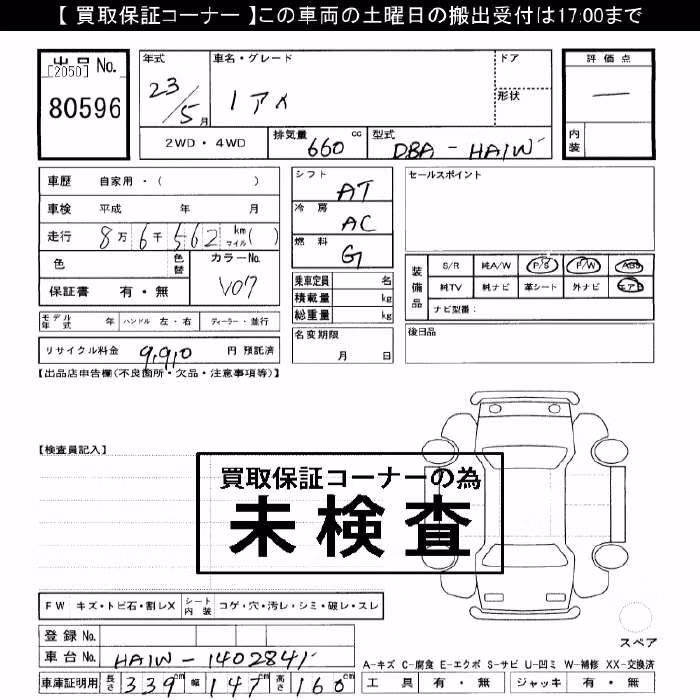 【 買取保証コーナー 】この車両の土曜日の搬出受付は17:00まで
出品 No.
[2050]
80596
年式
23/5月
車名・グレード
アイ
ドア
形状
評価点
―
内装
2WD・4WD
排気量 660 cc
型式 DBA - HA1W
車歴 自家用・( )
車検 平成 年 月
走行 8万6千562 km マイル ( )
色 色替 カラーNo.
V07
保証書 有・無
シフト AT
冷房 AC
燃料 G
乗車定員 名
積載量 kg
総重量 kg
セールスポイント
装備品
S/R 純A/W P/S P/W ABS
純TV 純ナビ 革シート 外ナビ エアB
ナビ型番:
モデル年式 年 ハンドル 左・右 ディーラー・並行
リサイクル料金 9,910 円 預託済
名変期限
月 日
後日品
【出品店申告欄(不良箇所・欠品・注意事項等)】
【検査員記入】
買取保証コーナーの為
未検査
FW キズ・トビ石・割レX シート内装 コゲ・穴・汚レ・シミ・破レ・スレ
登録 No.
車台 No. HA1W - 1402841
車庫証明用 長さ 339 cm 幅 147 cm 高さ 160 cm
スペア
A-キズ C-腐食 E-エクボ S-サビ U-凹ミ W-補修 XX-交換済
工具 有・無 ジャッキ 有・無